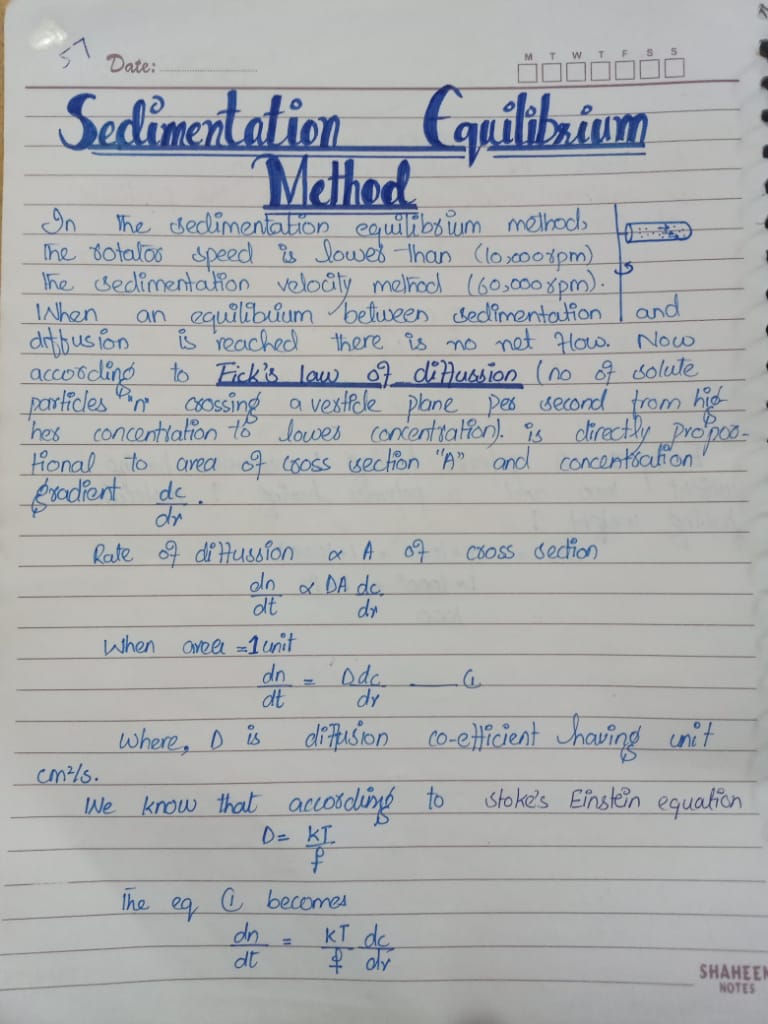 57
Date:
M T W T F S S
Sedimentation Equilibrium
Method
In the sedimentation equilibrium method,
the rotator speed is lower than (10,000rpm)
the sedimentation velocity method (60,000rpm).
When an equilibuium between sedimentation and
diffusion is reached there is no net flow. Now
according to Fick's law of diffussion (no of solute
particles "n" crossing a verticle plane per second from hig
her concentration to lower concentration). is directly propor-
tional to area of cross section "A" and concentration
gradient dc/dr.
Rate of diffussion ∝ A of cross section
dn/dt ∝ DA dc/dr
When area = 1 unit
dn/dt = D dc/dr —— ①
Where, D is diffusion co-efficient having unit
cm²/s.
We know that according to stoke's Einstein equation
D = kT/f
The eq ① becomes
dn/dt = kT/f dc/dr
SHAHEEN
NOTES